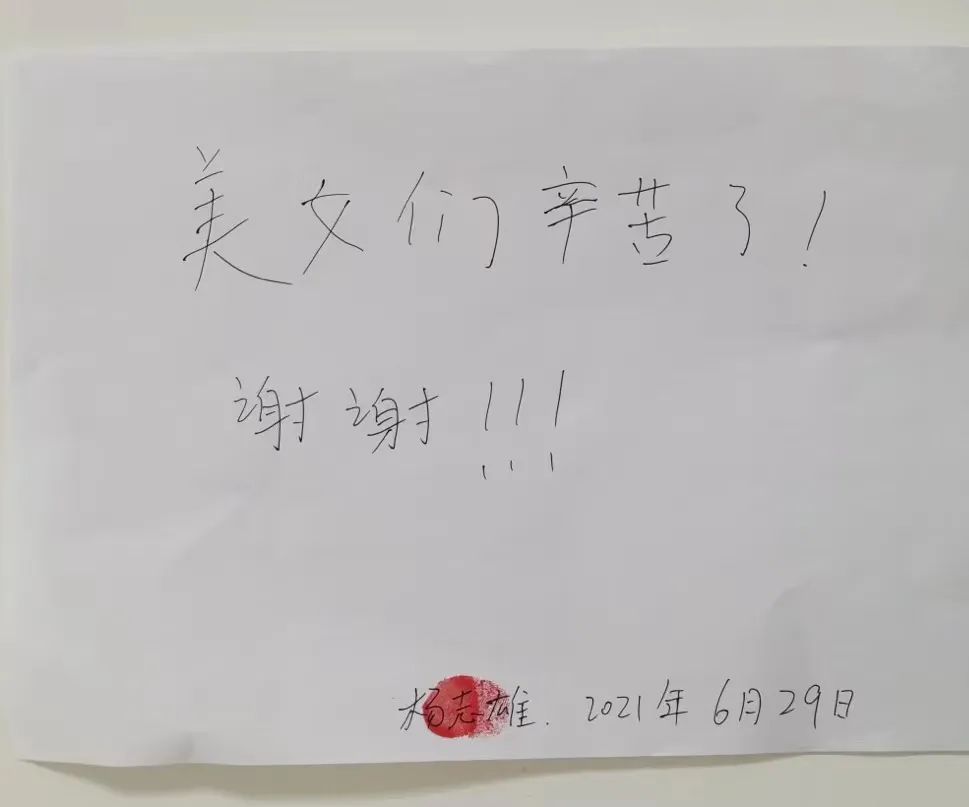 美女们辛苦了!
谢谢!!!
杨志雄. 2021年6月29日